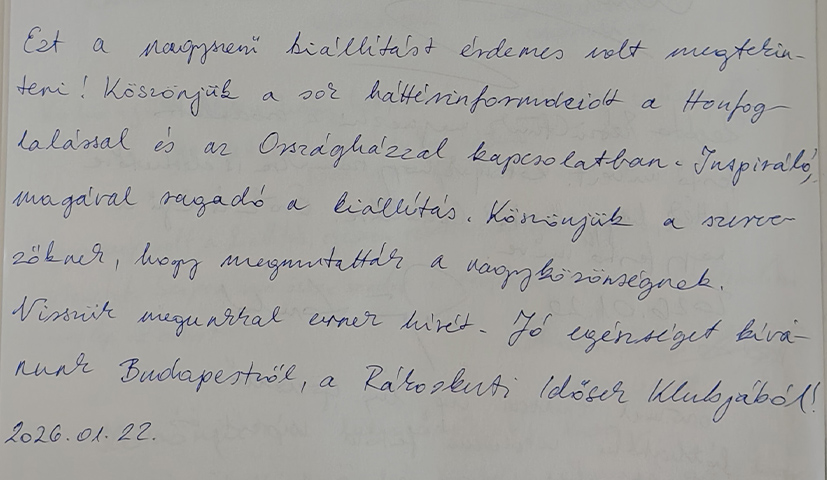 Ezt a nagyszerű kiállítást érdemes volt megtekin-
teni! Köszönjük a sok háttérinformációt a Honfog-
lalással és az Országházzal kapcsolatban. Inspiráló,
magával ragadó a kiállítás. Köszönjük a szerve-
zőknek, hogy megmutatták a nagyközönségnek.
Visszük magunkkal ennek hírét. Jó egészséget kívá-
nunk Budapestről, a Rákoskuti Idősek Klubjából!
2026.01.22.